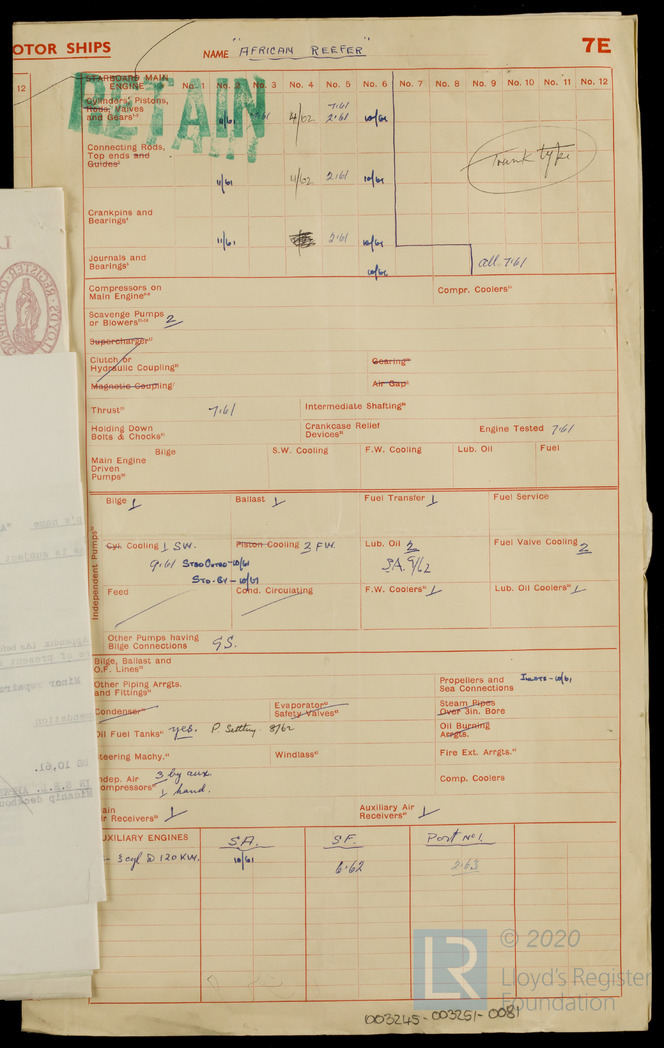 OTOR SHIPS
NAME "AFRICAN REEFER"
7E
12
STARBOARD MAIN ENGINE No. 1 No. 2 No. 3 No. 4 No. 5 No. 6 No. 7 No. 8 No. 9 No. 10 No. 11 No. 12
RETAIN
Cylinders, Pistons,
Rods, Valves
and Gears
7.61
11/61 4/62 2.61 10/61
Trunk type
Connecting Rods,
Top ends and
Guides
11/61 4/62 2.61 10/61
Crankpins and
Bearings
11/61 2.61 10/61
Journals and
Bearings
10/61 all 7.61
Compressors on
Main Engine
Compr. Coolers
Scavenge Pumps
or Blowers 2
Supercharger
Clutch or
Hydraulic Coupling
Gearing
Magnetic Coupling
Air Gap
Thrust 7.61 Intermediate Shafting
Holding Down
Bolts & Chocks
Crankcase Relief
Devices
Engine Tested 7.61
Main Engine
Driven
Pumps
Bilge S.W. Cooling F.W. Cooling Lub. Oil Fuel
Independent Pumps
Bilge 1 Ballast 1 Fuel Transfer 1 Fuel Service
Cyl. Cooling 1 SW. Piston Cooling 2 FW. Lub. Oil 2 Fuel Valve Cooling 2
9.61 STBD 10/61
STD-BY - 10/61
S.A. 9/62
Feed Cond. Circulating F.W. Coolers 1 Lub. Oil Coolers 1
Other Pumps having
Bilge Connections GS.
Bilge, Ballast and
O.F. Lines
Other Piping Arrgts.
and Fittings
Propellers and
Sea Connections
INLETS - 10/61
Condenser
Evaporator
Safety Valves
Steam Pipes
Over 3in. Bore
Oil Fuel Tanks yes. P. Settling 8/62
Oil Burning
Arrgts.
teering Machy. Windlass Fire Ext. Arrgts.
ndep. Air
ompressors
3 by aux.
1 hand.
Comp. Coolers
ain
ir Receivers 1
Auxiliary Air
Receivers 1
UXILIARY ENGINES S.A. S.F. Port No 1.
- 3 cyl @ 120 KW. 10/61 6.62 2.63
LR
© 2020
Lloyd's Register
Foundation
003245-003251-0081